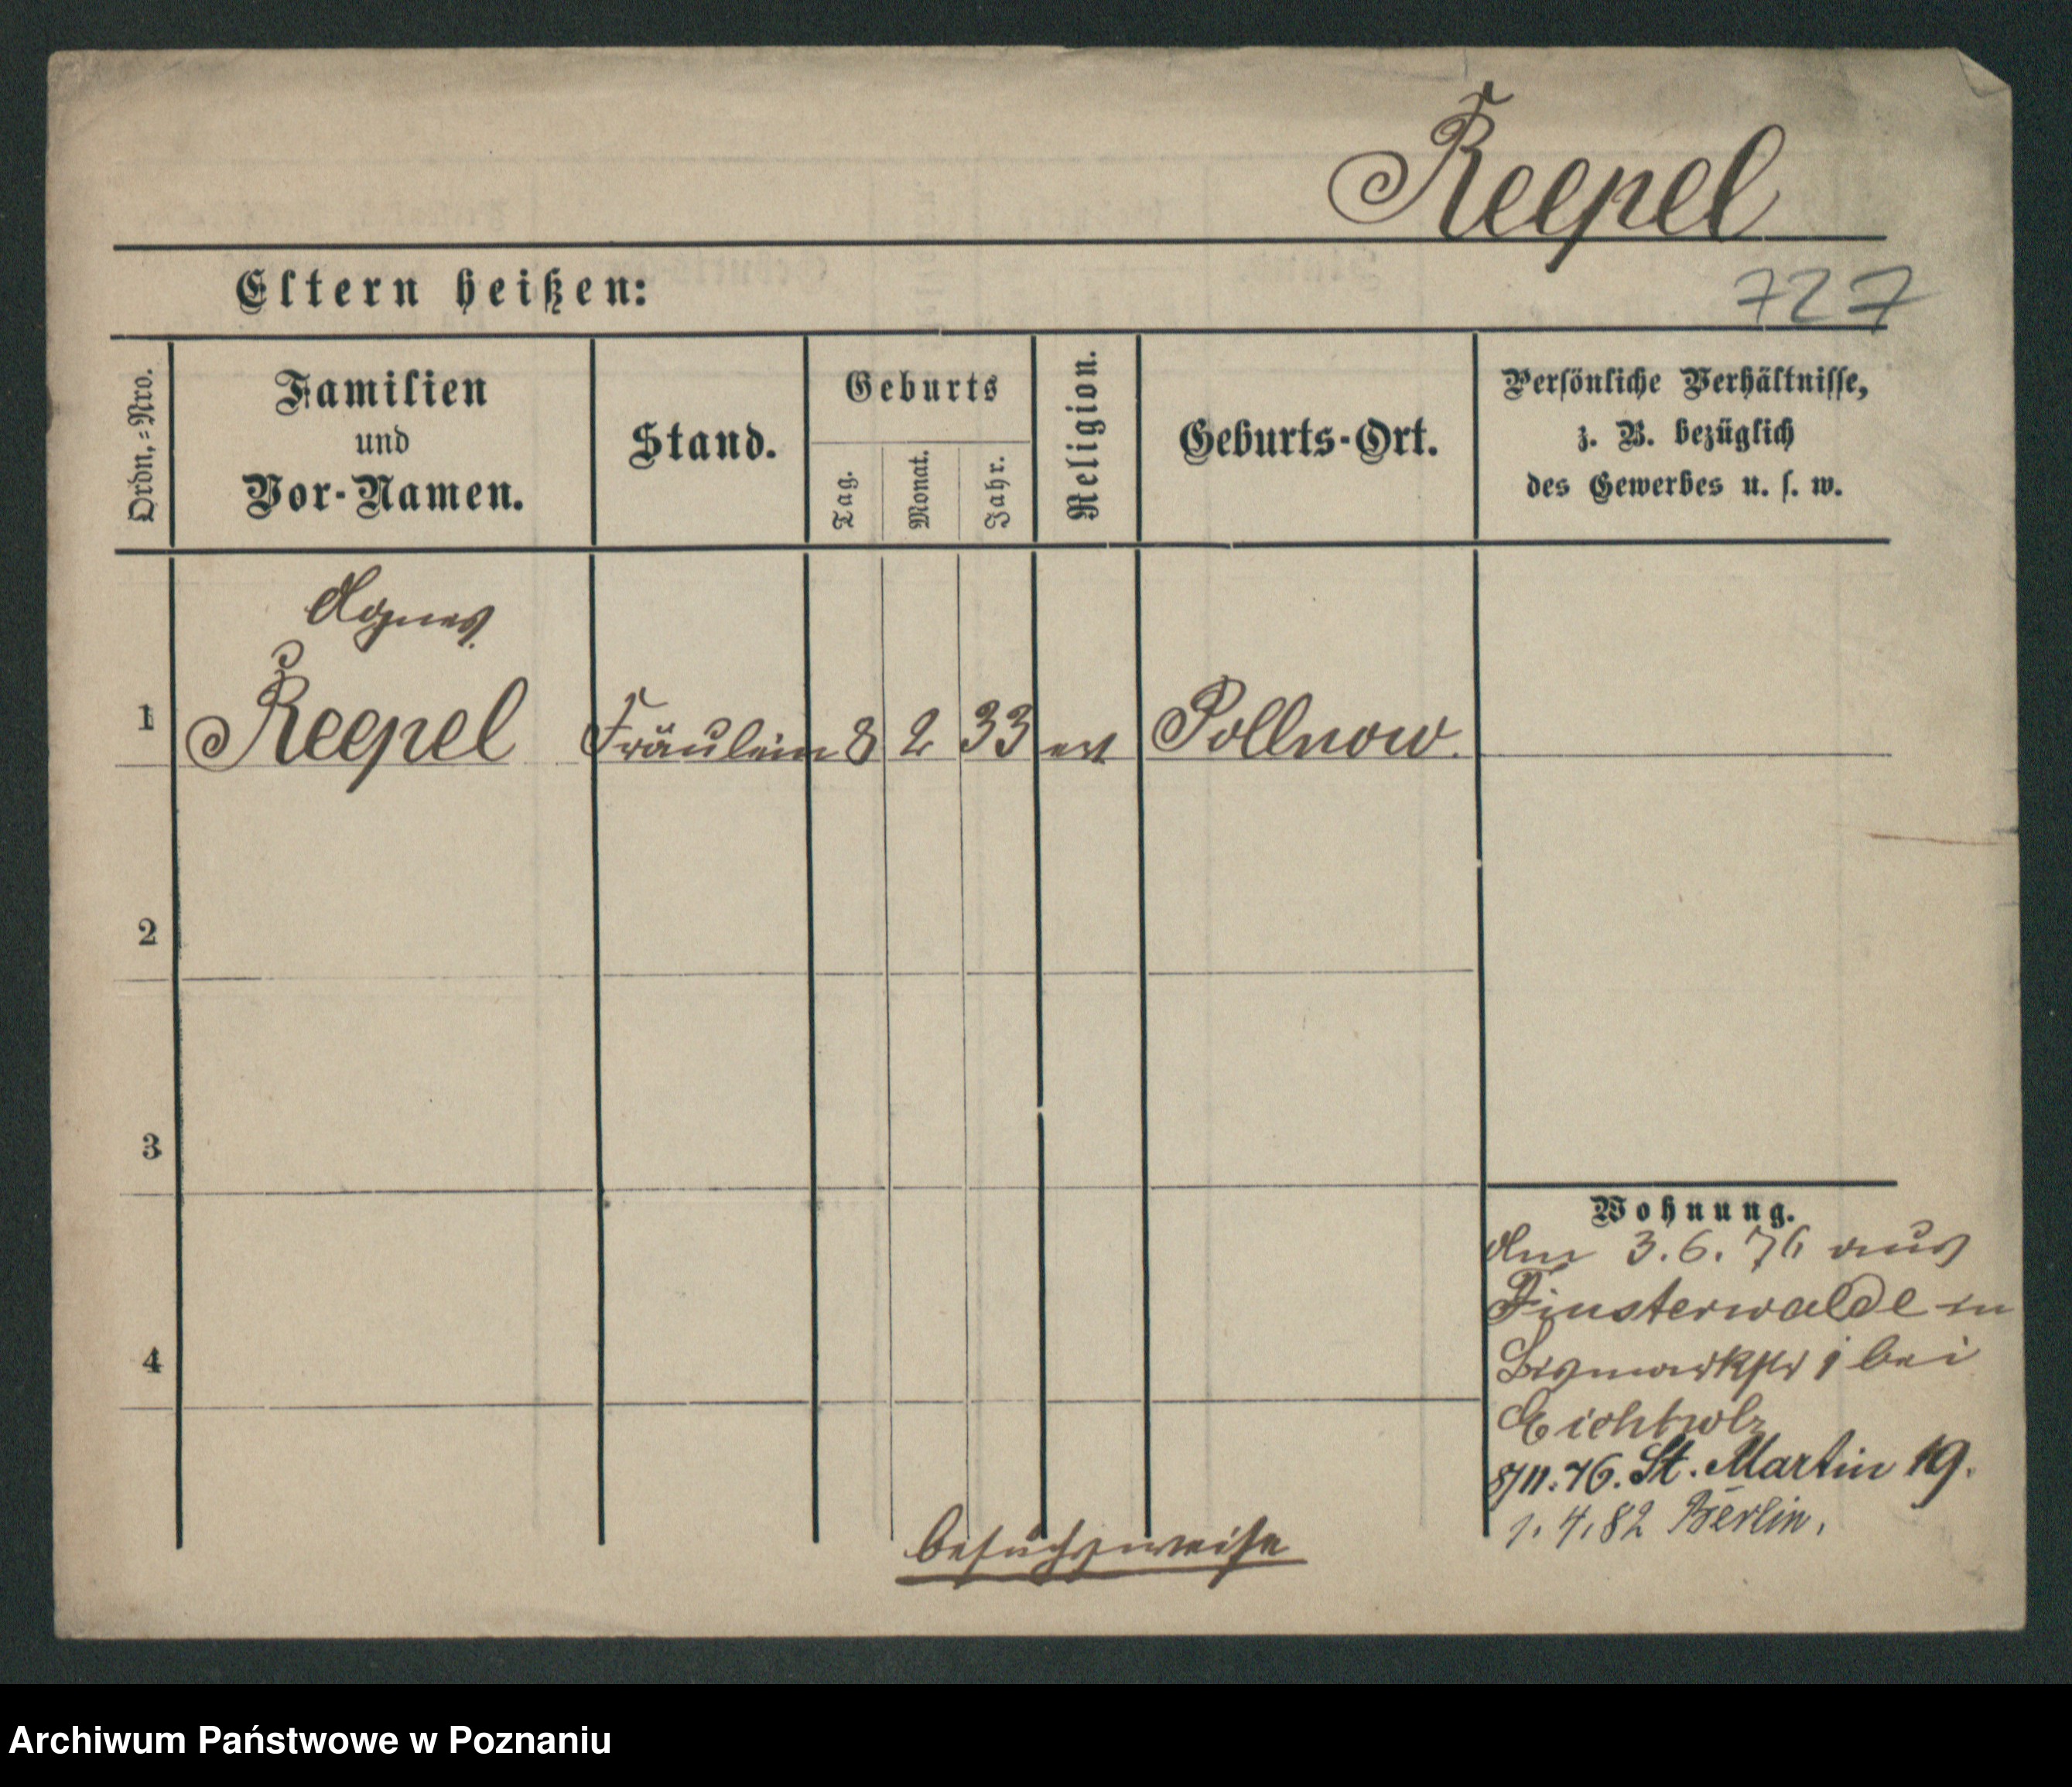 Reepel
Eltern heißen:
727
Ordn.=Nro.
Familien
und
Vor-Namen.
Stand.
Geburts
Tag.
Monat.
Jahr.
Religion.
Geburts-Ort.
Persönliche Verhältnisse,
z. B. bezüglich
des Gewerbes u. s. w.
Agnes
1 Reepel Fräulein 8 2 33 ev Pollnow.
2
3
4
Wohnung.
Am 3.6.76 aus
Finsterwalde in
Bismarkstr 1 bei
Eichholz
8/11.76. St. Martin 19.
1.4.82 Berlin.
besuchsweise
Archiwum Państwowe w Poznaniu